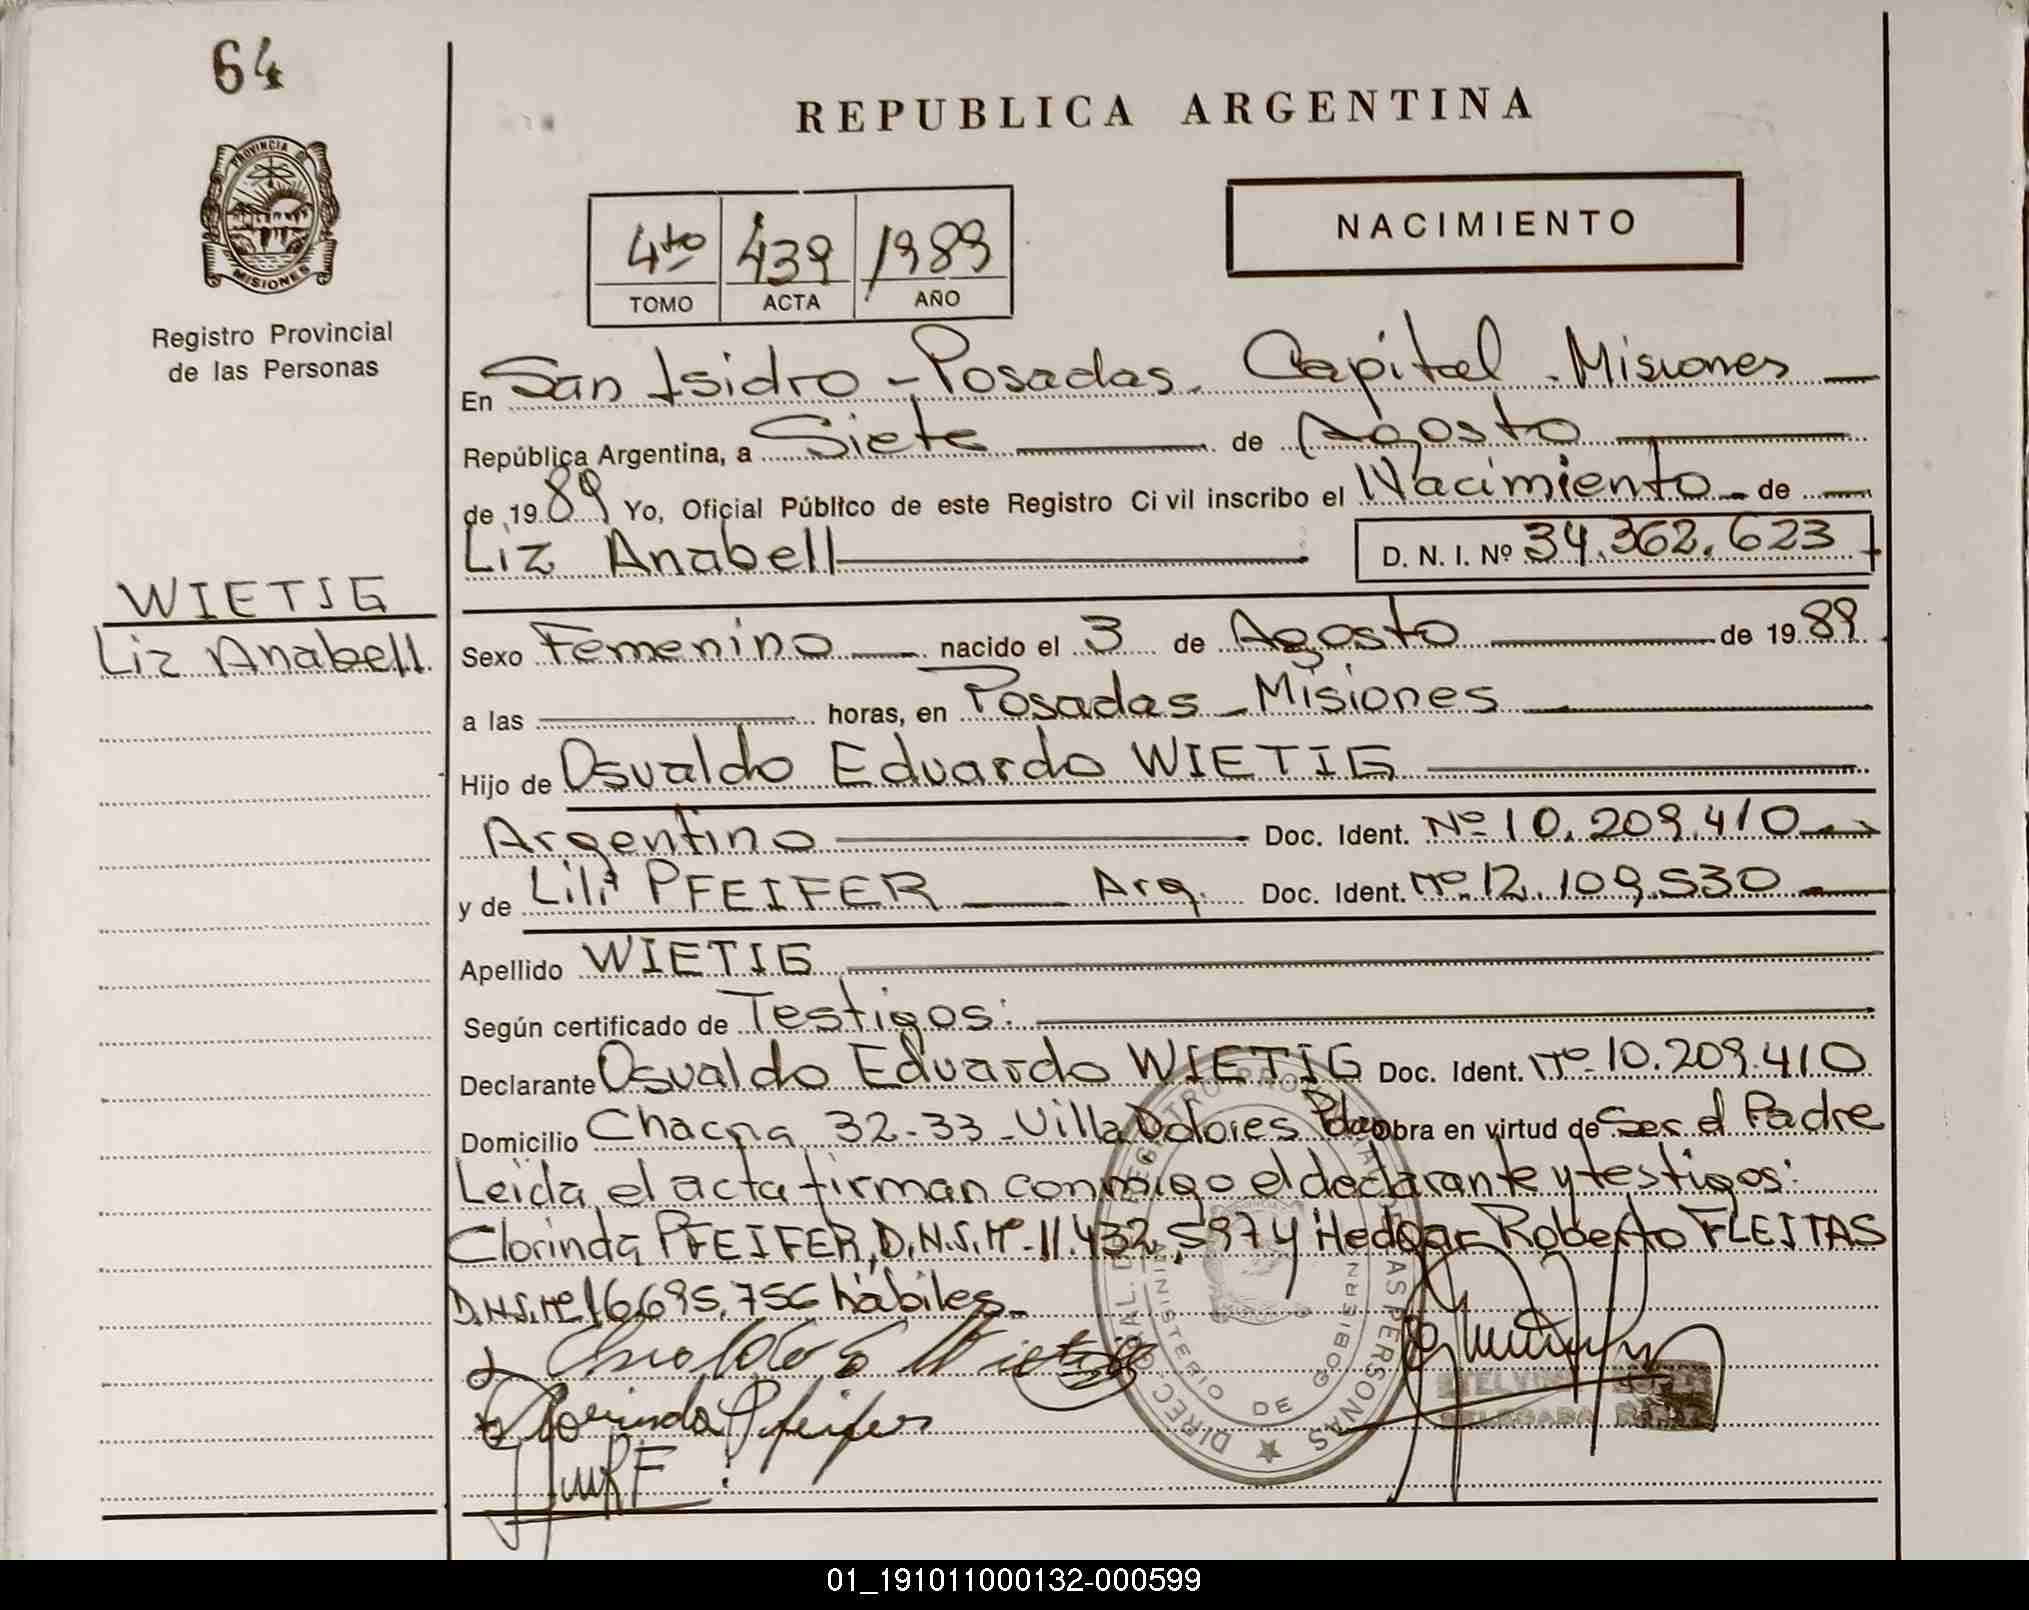 64
REPUBLICA ARGENTINA
PROVINCIA DE
MISIONES
Registro Provincial
de las Personas
4to 439 1989
TOMO ACTA AÑO
NACIMIENTO
En San Isidro - Posadas. Capital - Misiones
República Argentina, a Siete de Agosto
de 1989 Yo, Oficial Público de este Registro Civil inscribo el Nacimiento de
Liz Anabell D. N. I. Nº 34.362.623
WIETIG
Liz Anabell
Sexo Femenino nacido el 3 de Agosto de 1989
a las horas, en Posadas - Misiones
Hijo de Osvaldo Eduardo WIETIG
Argentino Doc. Ident. Nº 10.209.410
y de Lili PFEIFER Arg. Doc. Ident. Nº 12.109.530
Apellido WIETIG
Según certificado de Testigos:
Declarante Osvaldo Eduardo WIETIG Doc. Ident. Nº 10.209.410
Domicilio Chacra 32-33 - Villa Dolores Pdas obra en virtud de Ser el Padre
Leida el acta firman conmigo el declarante y testigos:
Clorinda PFEIFER, D.N.I. Nº 11.432.597 y Hedgar Roberto FLEITAS
D.N.I. Nº 16.695.756 hábiles.
Osvaldo E Wietig
Clorinda Pfeifer
DIREC. GRAL. DE REGISTRO PROVINCIAL DE LAS PERSONAS
MINISTERIO DE GOBIERN
01_191011000132-000599